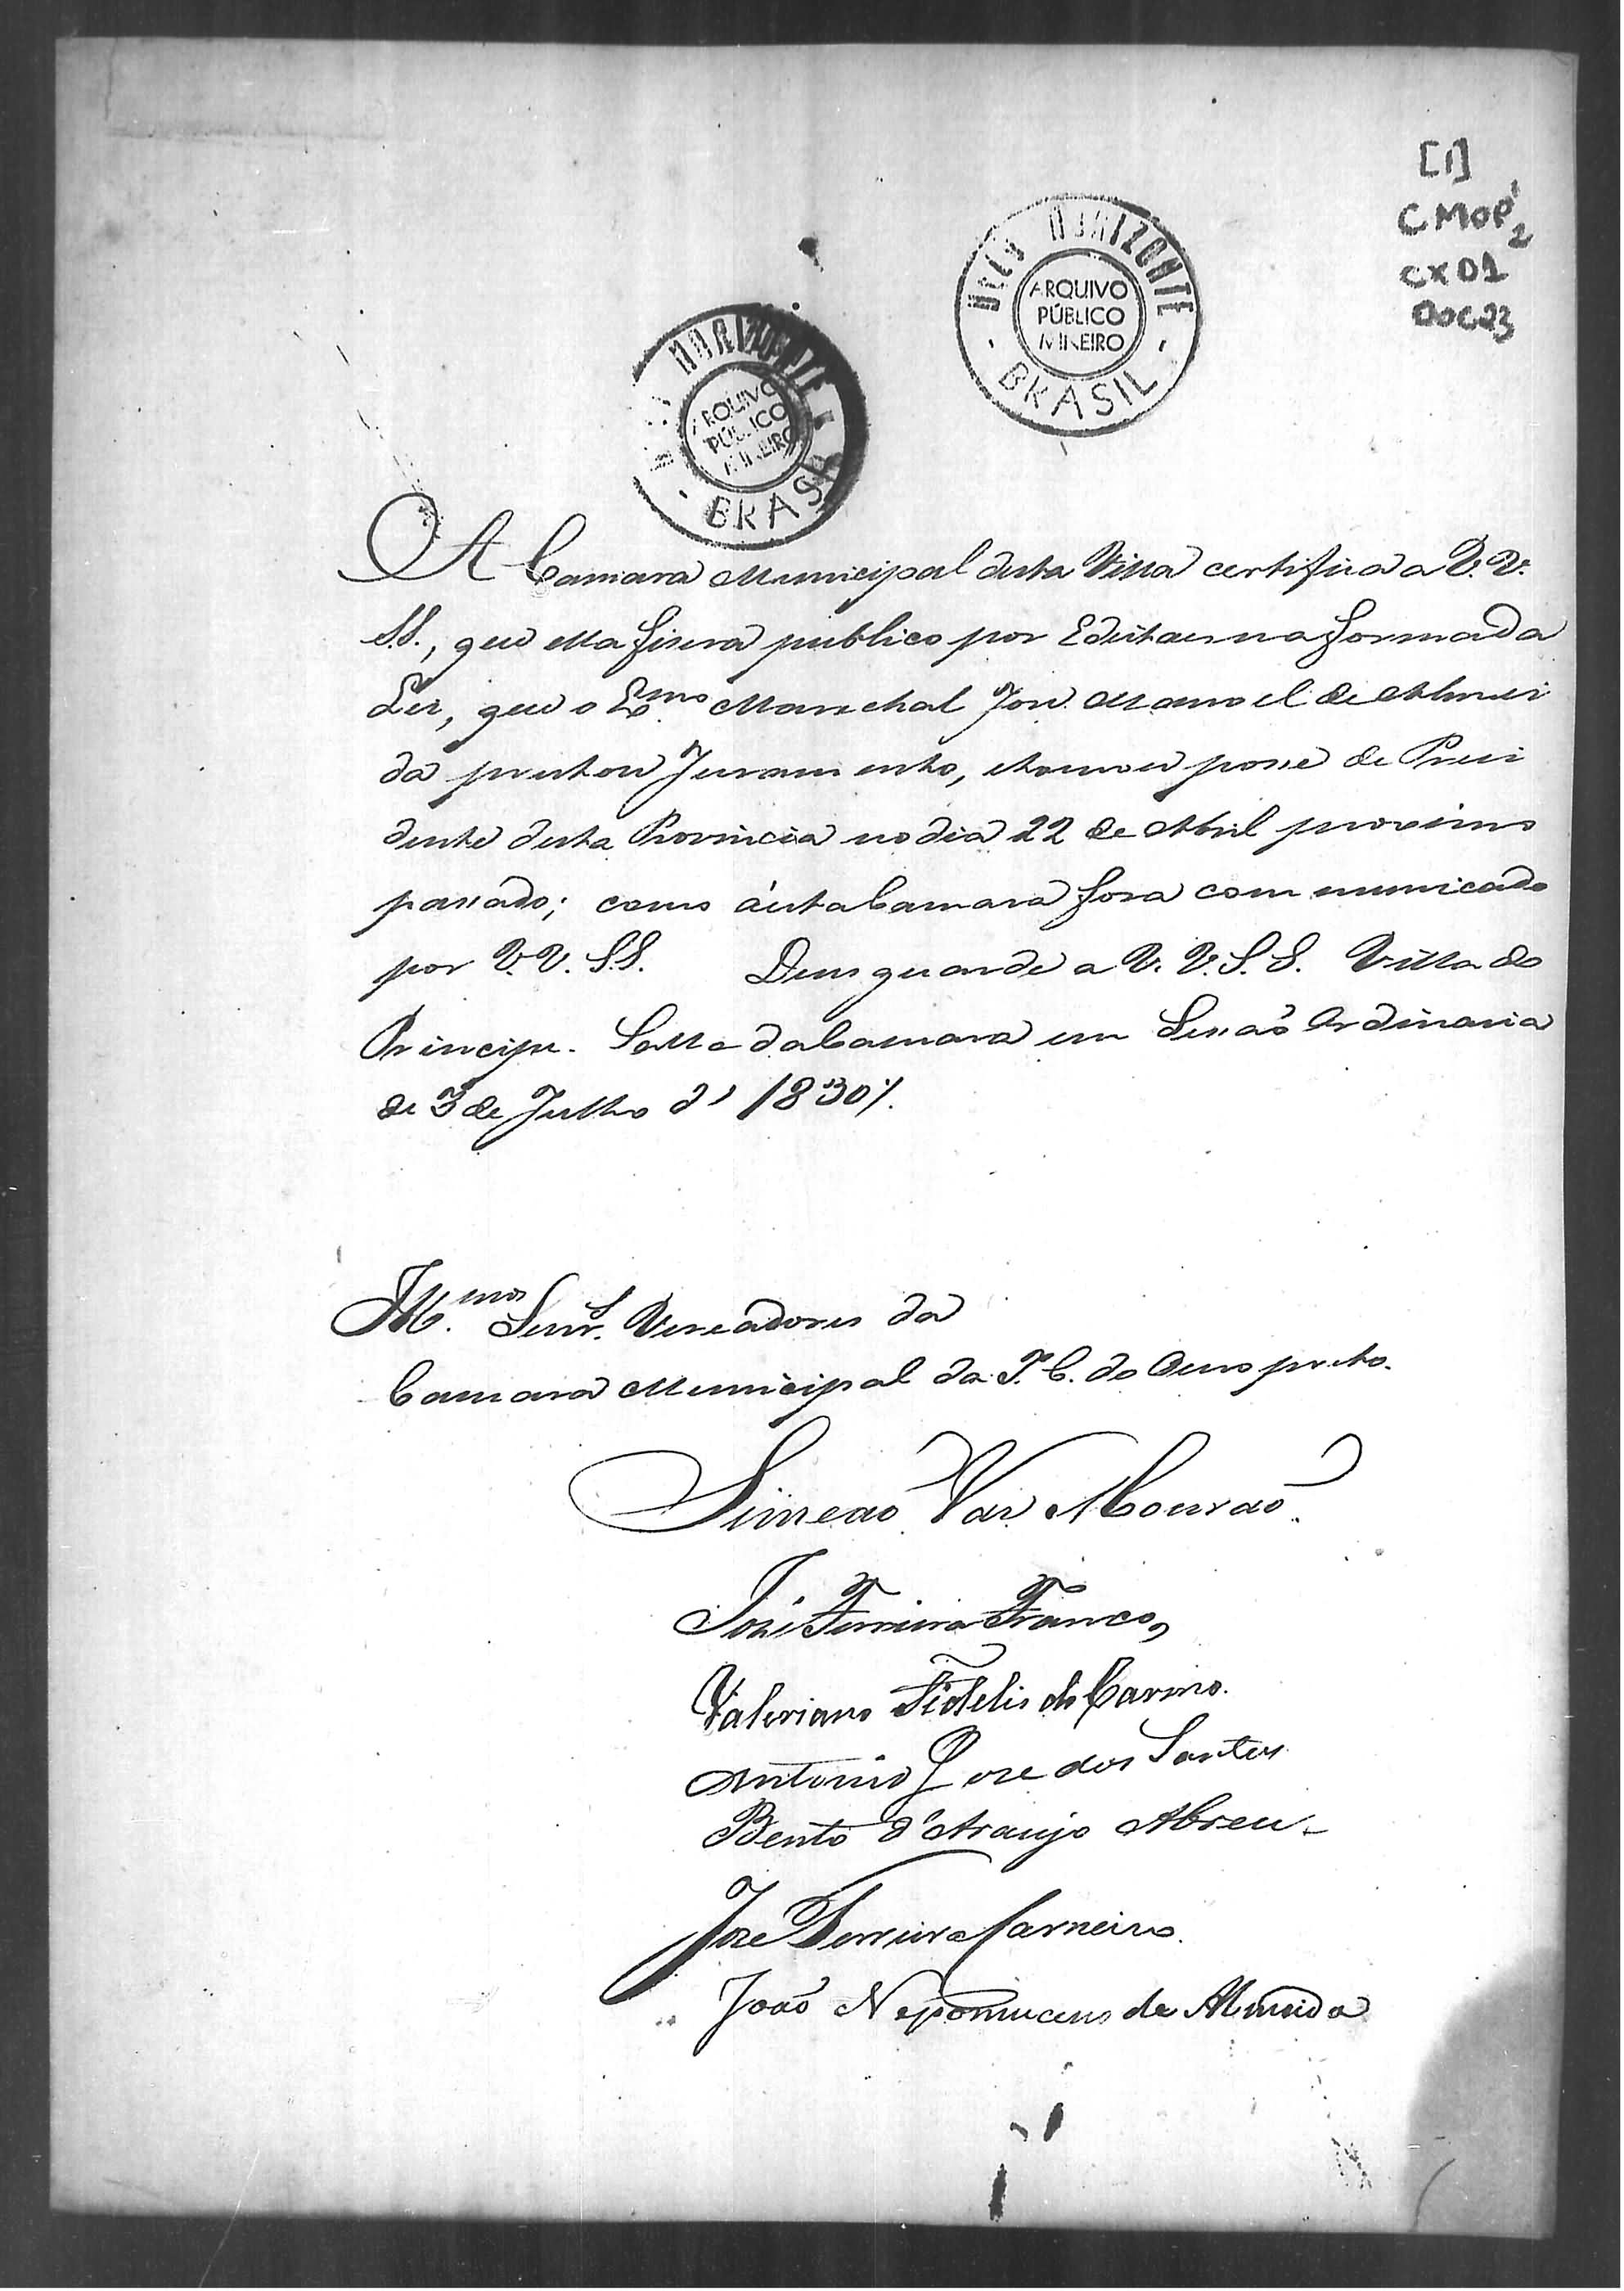 [1]
CMOP 1/2
CX 01
DOC 23
BELO HORIZONTE
ARQUIVO
PÚBLICO
MINEIRO
BRASIL
HORIZONTE
ARQUIVO
PÚBLICO
MINEIRO
BRASIL
A Camara Municipal desta Villa certifica a V.V.
S.S., que ella fisera publico por Editaes na forma da
Lei, que o Exmo Marechal José Manoel de Almei
da prestou Juramento, e tomou posse de Presi
dente desta Provincia no dia 22 de Abril proximo
passado; como á esta Camara fora communicado
por V.V. S.S. Deus guarde a V.V.S.S. Villa do
Principe. Salla da Camara em Sessaõ Ordinaria
de 3 de Julho d' 1830/.
Illmos Senrs. Vereadores da
Camara Municipal da I. C. do Ouro preto.
Simeaõ Vaz Mouraõ.
José Ferreira Franco,
Valeriano Fidelis do Carmo.
Antonio Jose dos Santos
Bento d'Araujo Abreu.
Joze Ferreira Carneiro.
Joaõ Nepomuceno de Almeida